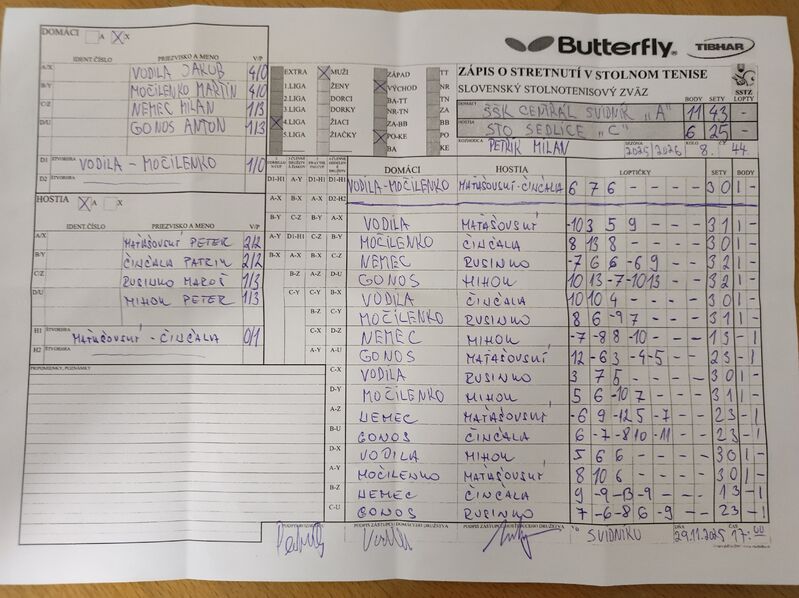 DOMÁCI A X
IDENT.ČÍSLO PRIEZVISKO A MENO V/P
A/X VODILA JAKUB 4/0
B/Y MOČILENKO MARTIN 4/0
C/Z NEMEC MILAN 1/3
D/U GONOS ANTON 1/3
D1 ŠTVORHRA VODILA - MOČILENKO 1/0
D2
HOSTIA A X
IDENT.ČÍSLO PRIEZVISKO A MENO V/P
A/X MAŤAŠOVSKÝ PETER 2/2
B/Y ČINČALA PATRIK 2/2
C/Z RUSINKO MAROŠ 1/3
D/U MIHOK PETER 1/3
H1 ŠTVORHRA MAŤAŠOVSKÝ - ČINČALA 0/1
H2 ŠTVORHRA
PRIPOMIENKY, POZNÁMKY
Butterfly TIBHAR
EXTRA MUŽI ZÁPAD TT
1.LIGA ŽENY VÝCHOD NR
2.LIGA DORCI BA-TT TN
3.LIGA DORKY NR-TN ZA
4.LIGA ŽIACI ZA-BB BB
5.LIGA ŽIAČKY PO-KE PO
BA KE
ZÁPIS O STRETNUTÍ V STOLNOM TENISE
SLOVENSKÝ STOLNOTENISOVÝ ZVÄZ
SSTZ
BODY SETY LOPTY
DOMÁCI ŠŠK CENTRÁL SVIDNÍK "A" 11 43 -
HOSTIA STO SEDLICE "C" 6 25 -
PETRIK MILAN SEZÓNA 2025/2026 KOLO 8. 44.
DOMÁCI HOSTIA LOPTIČKY SETY BODY
VODILA-MOČILENKO MAŤAŠOVSKÝ-ČINČALA 6 7 6 - - - - 3 0 1 -
VODILA MAŤAŠOVSKÝ -10 3 5 9 - - - 3 1 1 -
MOČILENKO ČINČALA 8 13 8 - - - - 3 0 1 -
NEMEC RUSINKO -7 6 6 -6 9 - - 3 2 1 -
GONOS MIHOK 10 13 -7 -10 13 - - 3 2 1 -
VODILA ČINČALA 10 10 4 - - - - 3 0 1 -
MOČILENKO RUSINKO 8 6 -9 7 - - - 3 1 1 -
NEMEC MIHOK -7 -8 8 -10 - - - 1 3 - 1
GONOS MAŤAŠOVSKÝ 12 -6 3 -4 -5 - - 2 3 - 1
VODILA RUSINKO 3 7 5 - - - - 3 0 1 -
MOČILENKO MIHOK 5 6 -10 7 - - - 3 1 1 -
NEMEC MAŤAŠOVSKÝ -6 9 -12 5 -7 - - 2 3 - 1
GONOS ČINČALA 6 -7 -8 10 -11 - - 2 3 - 1
VODILA MIHOK 5 6 6 - - - - 3 0 1 -
MOČILENKO MAŤAŠOVSKÝ 8 10 6 - - - - 3 0 1 -
NEMEC ČINČALA 9 -9 -13 -9 - - - 1 3 - 1
GONOS RUSINKO 7 -6 -8 6 -9 - - 2 3 - 1
PODPIS ZÁSTUPCU DOMÁCEHO DRUŽSTVA PODPIS ZÁSTUPCU HOSŤUJÚCEHO DRUŽSTVA
SVIDNÍKU DŇA 29.11.2025 ČAS 17:00